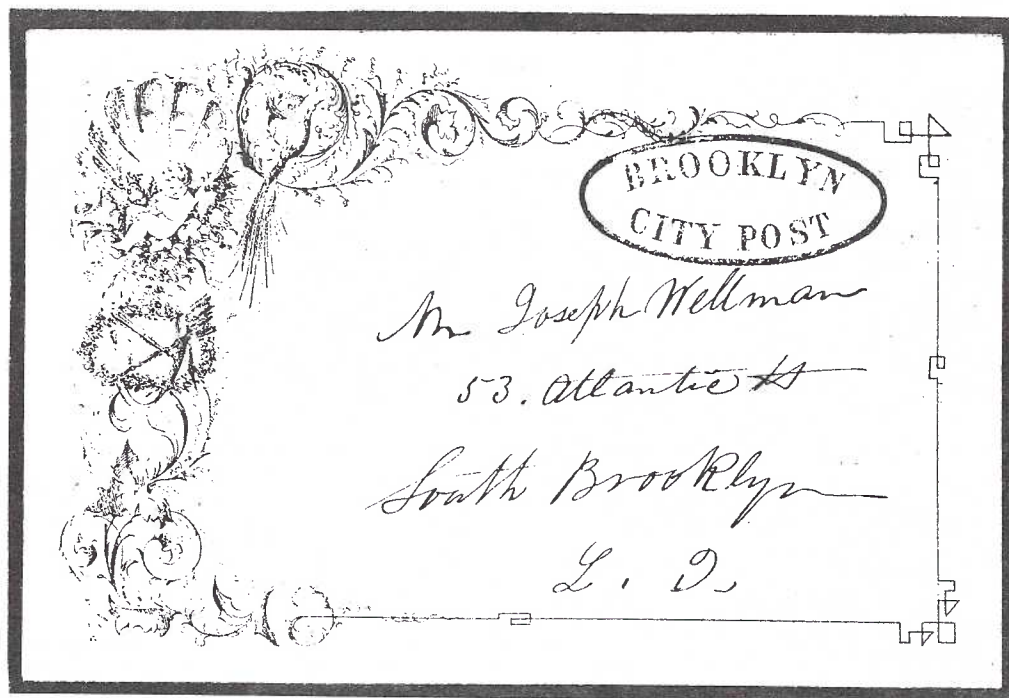 BROOKLYN
CITY POST
Mr Joseph Wellman
53. Atlantic St
South Brooklyn
L. I.